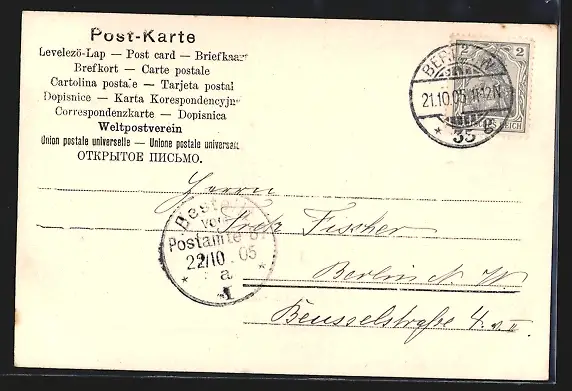 Post-Karte
Levelezö-Lap — Post card — Briefkaart
Brefkort — Carte postale
Cartolina postale — Tarjeta postal
Dopisnice — Karta Korespondencyjna
Correspondenzkarte — Dopisnica
Weltpostverein
Union postale universelle — Unione postale universale
ОТКРЫТОЕ ПИСЬМО.
BERLIN N
21.10.05. 11-12N
* 35 g
2
REICH
Herrn
Fritz Fischer
Berlin N. W.
Beusselstraße 4. v. II
Bestellt
vom
Postamte
22/10. 05
* a. *
1